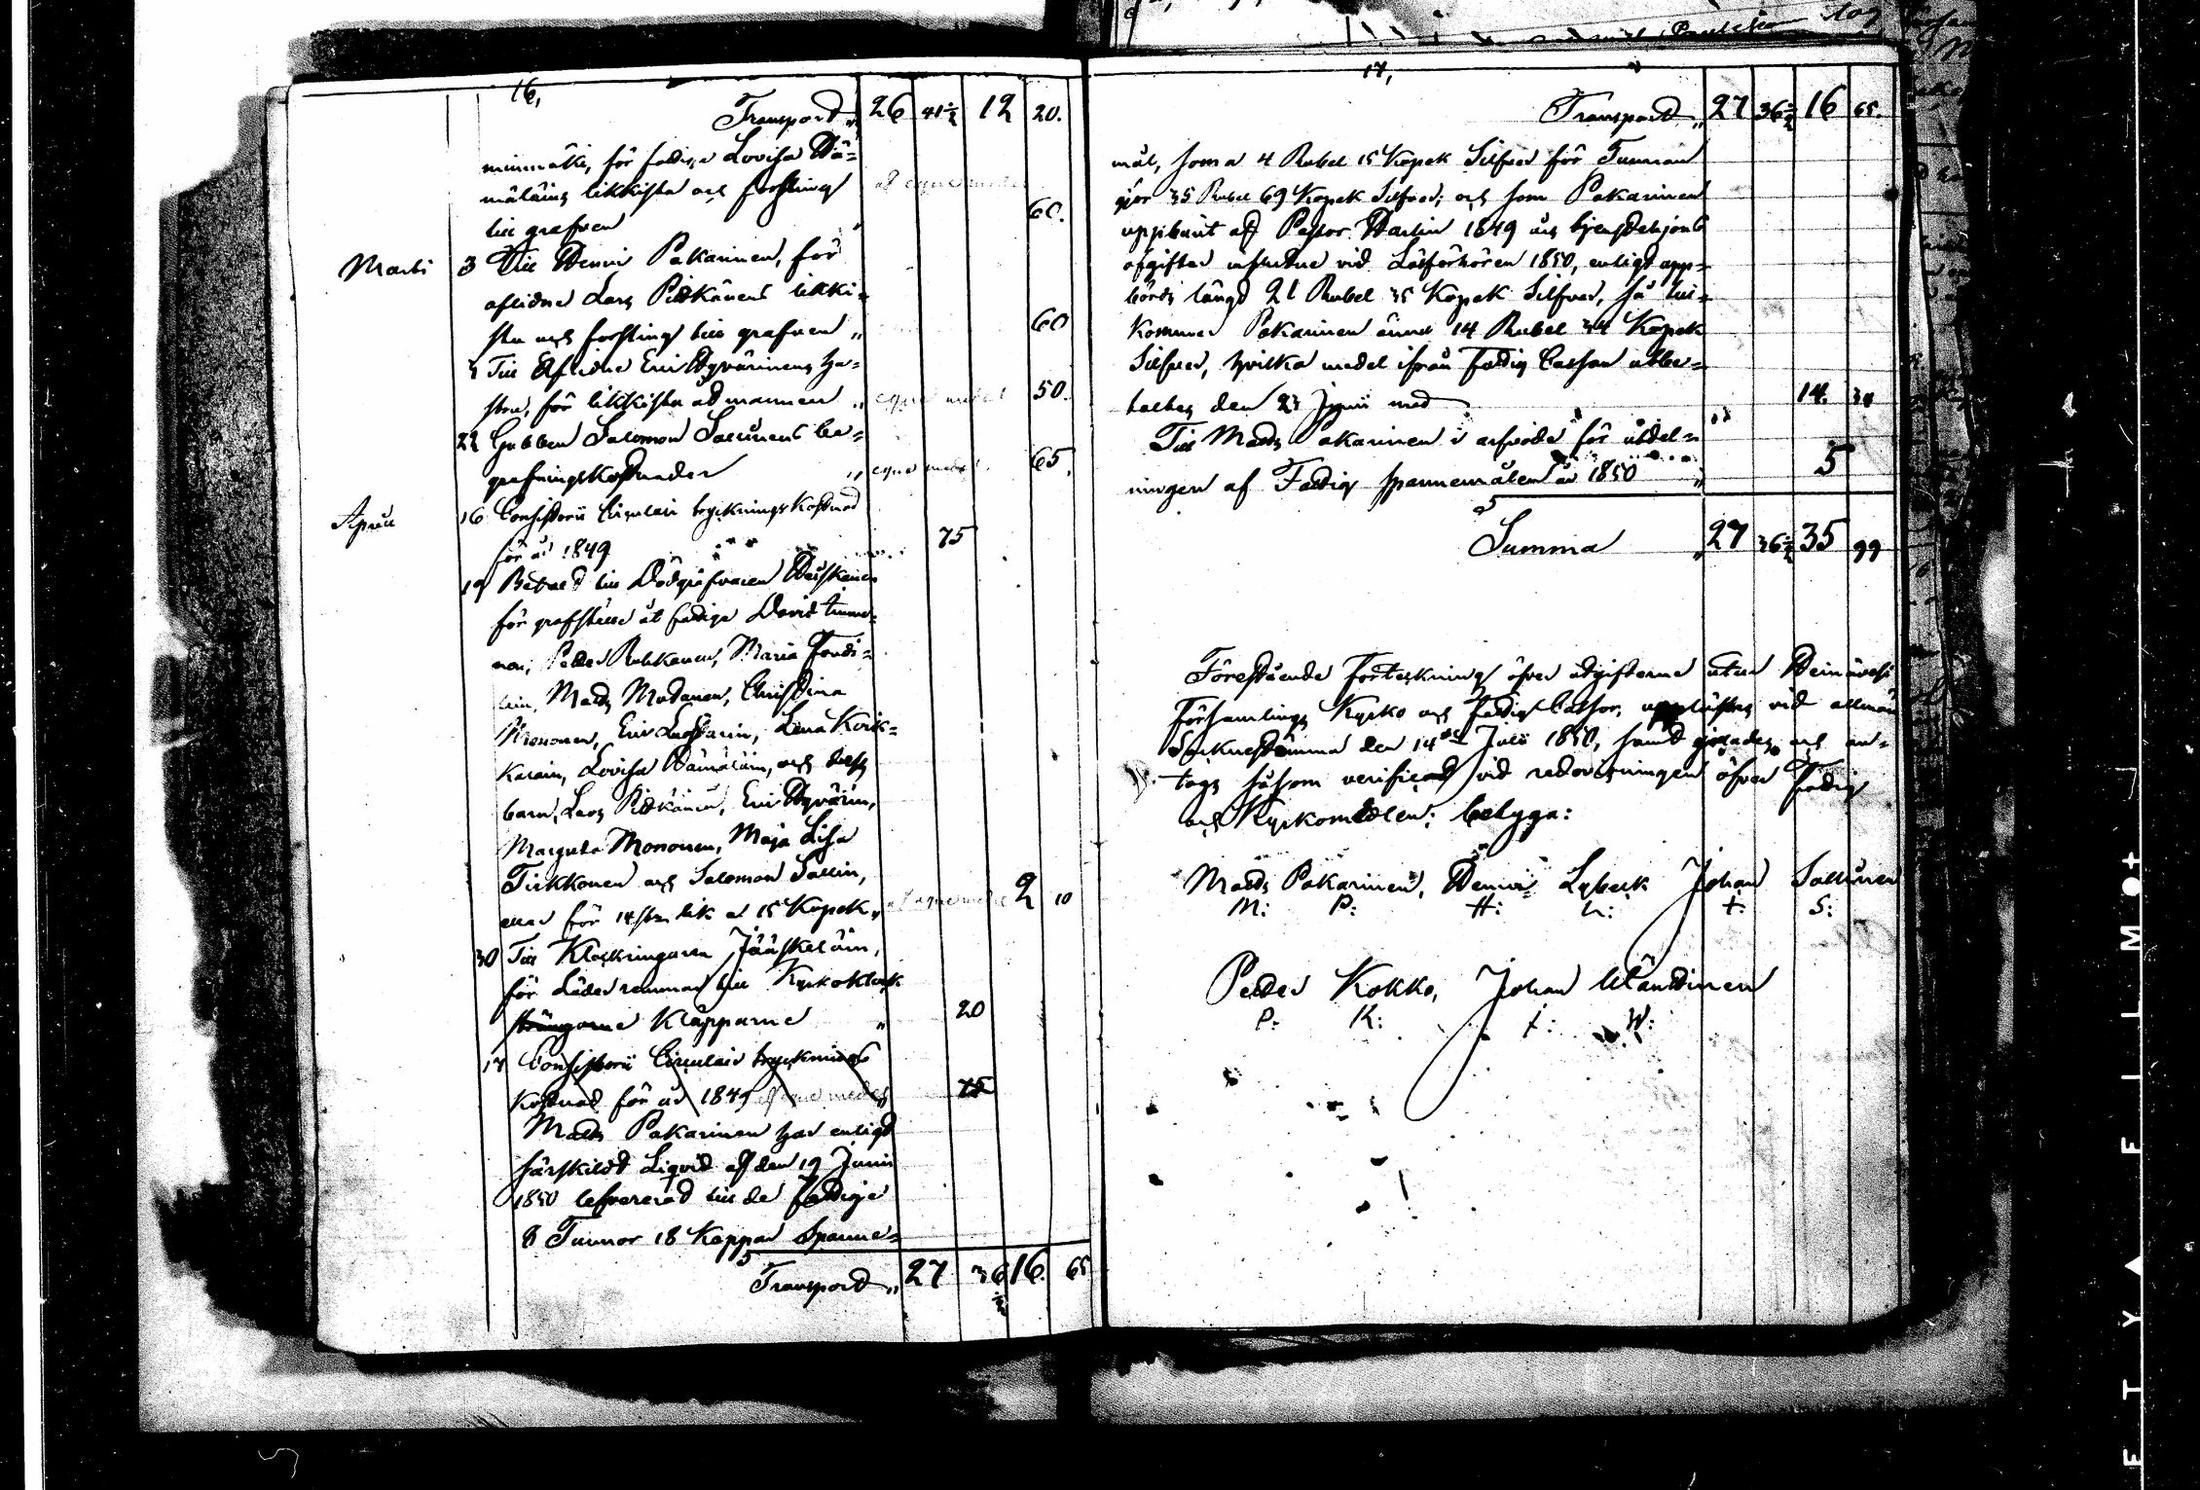 16.
Transport „ 26 41½ 12 20.
för fattiga Lovisa Hä=
mäläins likkista och forsling
till grafven „ 60.
Martii 3 Till Henric Pakarinen, för
aflidne Lars Pitkänens likki=
sta och forsling till grafven „ 60
Till Aflidne Eric Hyvärinens hu=
stru, för likkista åt mannen „ 50.
22 Gubben Salomon Sallinens be=
grafningskostnader „ 65.
April 16 Consistorii Circulair tryckningskostnad
för år 1849 75
19 Betalt till Dödgräfvaren
för grafställe åt fattige David
nen, Petter Rubkanen, Maria
Mats Modanen, Christina
Mononen, Eric Lena Kerik=
karain, Lovisa Hämäläin, och dess
barn, Lars Pitkänen, Eric Hyvärin,
Margreta Mononen, Maja Lisa
Tirkkonen och Salomon Sallin,
eller för 14 lik at 15 Kopek „ 2 10
30 Till Klockringaren Jääskeläin,
för Läder remmar till Kyrkoklock
strängarne Kläpparne „ 20
17 Consistorii Circulair trycknings
kostnad för år 1849 75
Mats Pakarinen har enligt
särskildt Liqvid af den 19 Junii
1850 lefvererat till de fattige
8 Tunnor 18 Kappar Spanne=
Transport „ 27 36½ 16. 65
17.
Transport „ 27 36½ 16 65.
mål, som a 4 Rubel 15 Kopek Silfver för Tunnan
gjör 35 Rubel 69 Kopek Silfver; och som Pakarinen
uppburit af Pastor 1849 års tjenstehjons
afgifter influtne vid Läsförhören 1850, enligt upp=
börds längd 21 Rubel 35 Kopek Silfver, så till=
kommer Pakarinen ännu 14 Rubel 34 Kopek
Silfver, hvilka medel ifrån Fattig Cassan utbe=
taltes den 23 Junii med 14. 34
Till Mats Pakarinen i arfvode för utdel=
ningen af Fattig spannemålen år 1850 „ 5
Summa „ 27 36½ 35 99
Förestående Förteckning öfver utgifterne utur Heinävesi
Församlings Kyrko och Fattig Cassor, upplästes vid allmän
Socknestämma den 14de Julii 1850, samt gillades och an=
togs såsom verificat vid redovisningen öfver Fattig
och Kyrkomedlen; betyga:
Mats Pakarinen, Henric Lybeck Johan Sallinen
M: P: H: L: J: S:
Petter Kokko, Johan Wäntinen
P: K: J: W:
ETY ▲ FILM